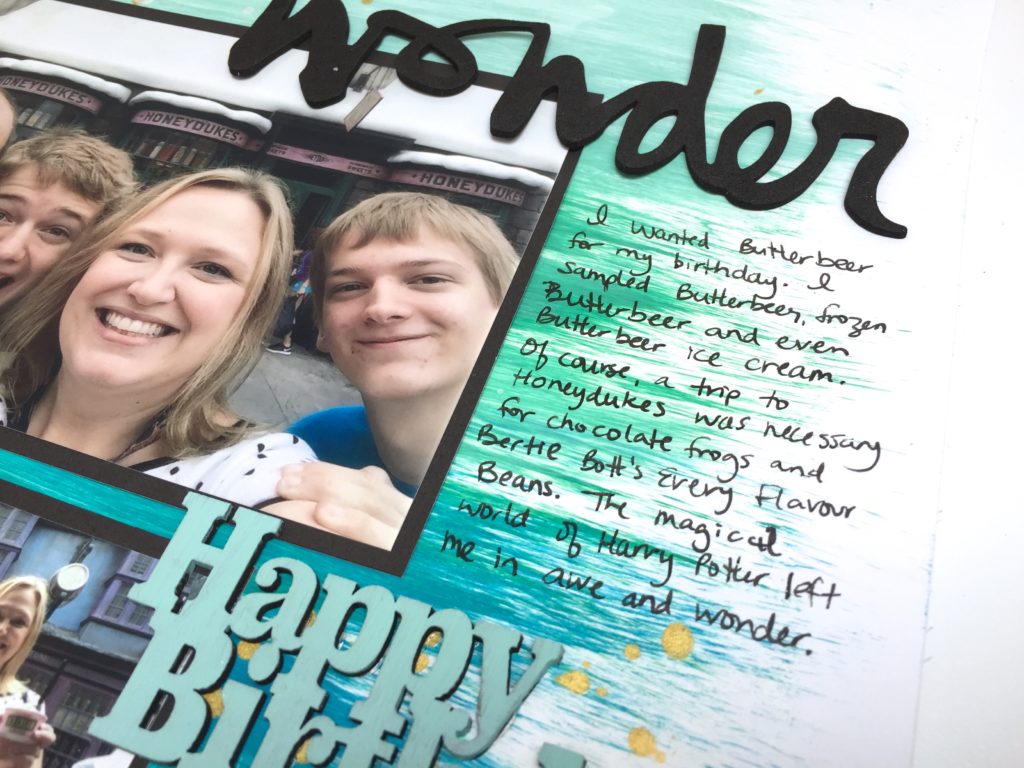 wonder
HONEYDUKES
HONEYDUKES
HONEYDUKES
SWEETS
I wanted Butterbeer
for my birthday. I
sampled Butterbeer, frozen
Butterbeer and even
Butterbeer ice cream.
Of course, a trip to
Honeydukes was necessary
for chocolate frogs and
Bertie Bott's Every Flavour
Beans. The magical
world of Harry Potter left
me in awe and wonder.
Happy
Birth